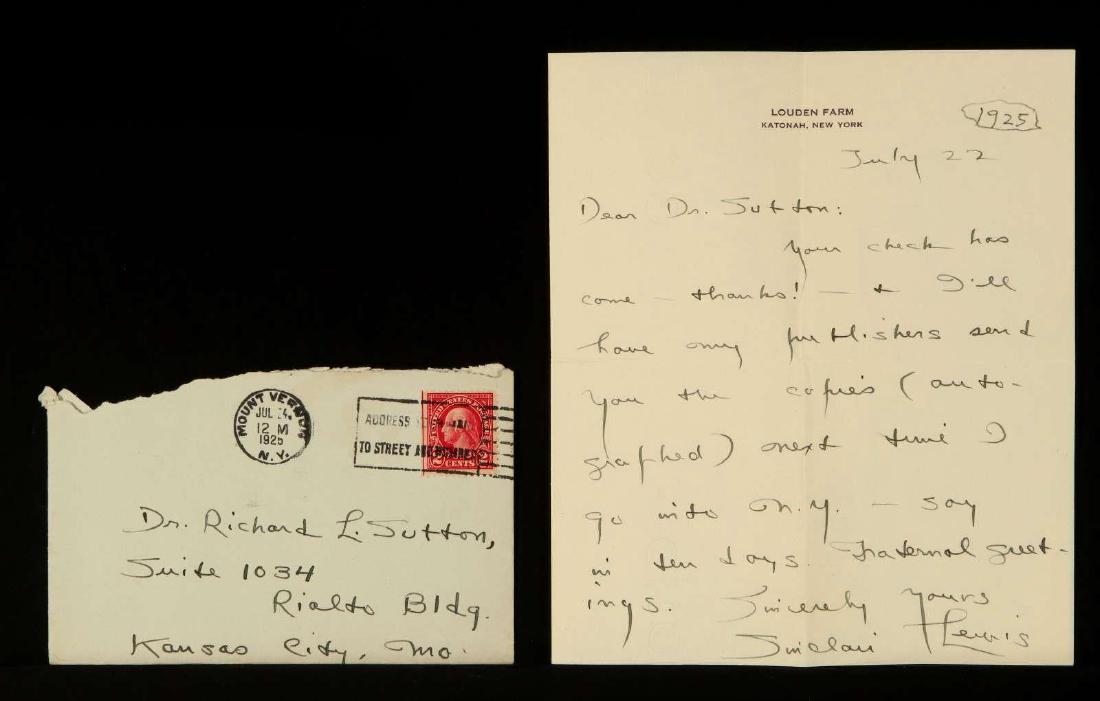 MOUNT VERNON
JUL 24
12 M
1925
N.Y.
ADDRESS
TO STREET AND NUMBER
UNITED STATES POSTAGE
2 CENTS 2
Dr. Richard L. Sutton,
Suite 1034
Rialto Bldg.
Kansas City, Mo.
LOUDEN FARM
KATONAH, NEW YORK
1925
July 22
Dear Dr. Sutton:
Your check has
come – thanks! – + I'll
have my publishers send
you the copies (auto-
graphed) next time I
go into N.Y. – say
in ten days. Fraternal greet-
ings. Sincerely yours
Sinclair Lewis